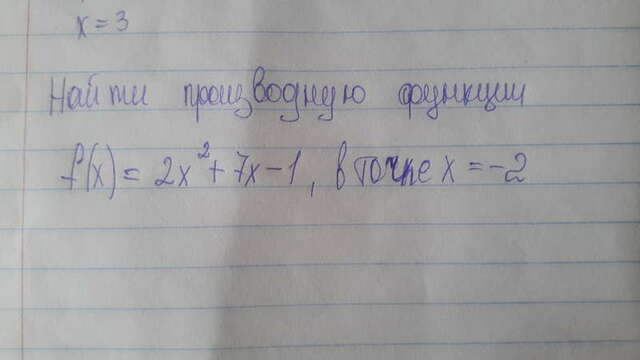 x = 3
Найти производную функции
f(x) = 2x² + 7x - 1, в точке x = -2